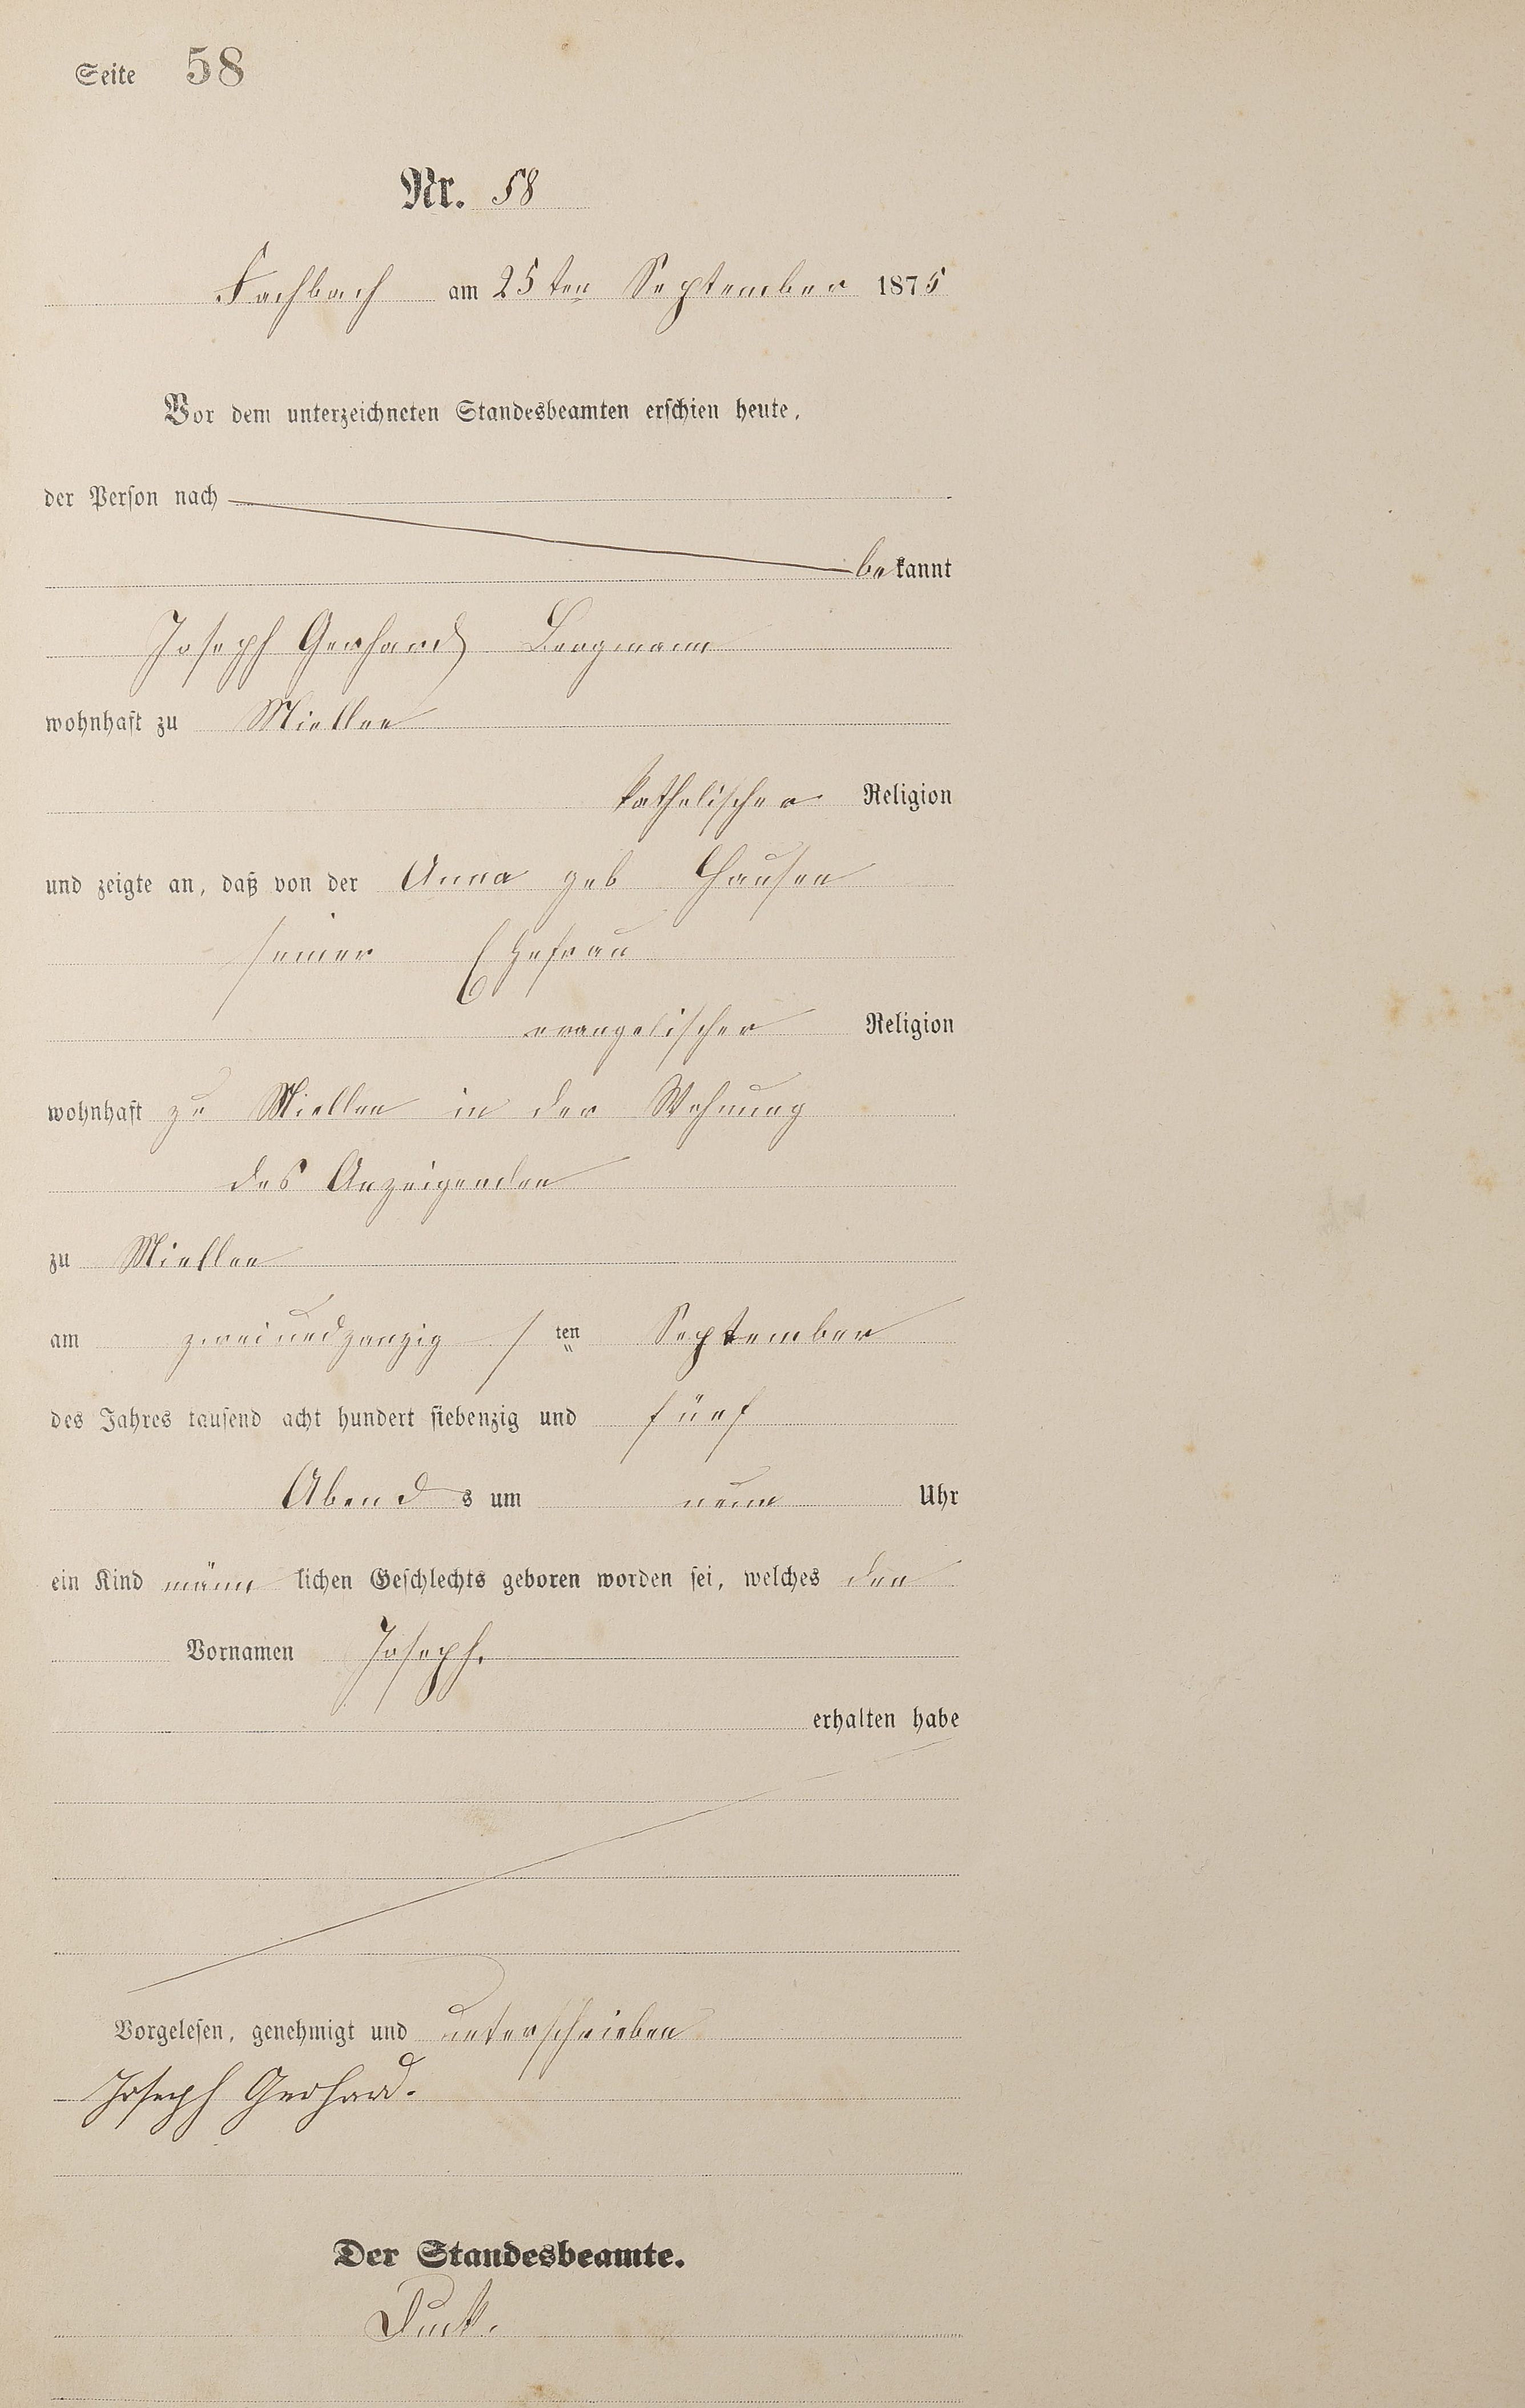 Seite 58
Nr. 58
Fachbach am 25ten September 1875
Vor dem unterzeichneten Standesbeamten erschien heute,
der Person nach
bekannt
Joseph Gerhard Bergmann
wohnhaft zu Miellen
katholischer Religion
und zeigte an, daß von der Anna geb Hausen
seiner Ehefrau
evangelischer Religion
wohnhaft zu Miellen in der Wohnung
des Anzeigenden
zu Miellen
am zweiundzanzig sten September
des Jahres tausend acht hundert siebenzig und fünf
Abends um neun Uhr
ein Kind männlichen Geschlechts geboren worden sei, welches den
Vornamen Joseph.
erhalten habe
Vorgelesen, genehmigt und unterschrieben
Joseph Gerhard.
Der Standesbeamte.